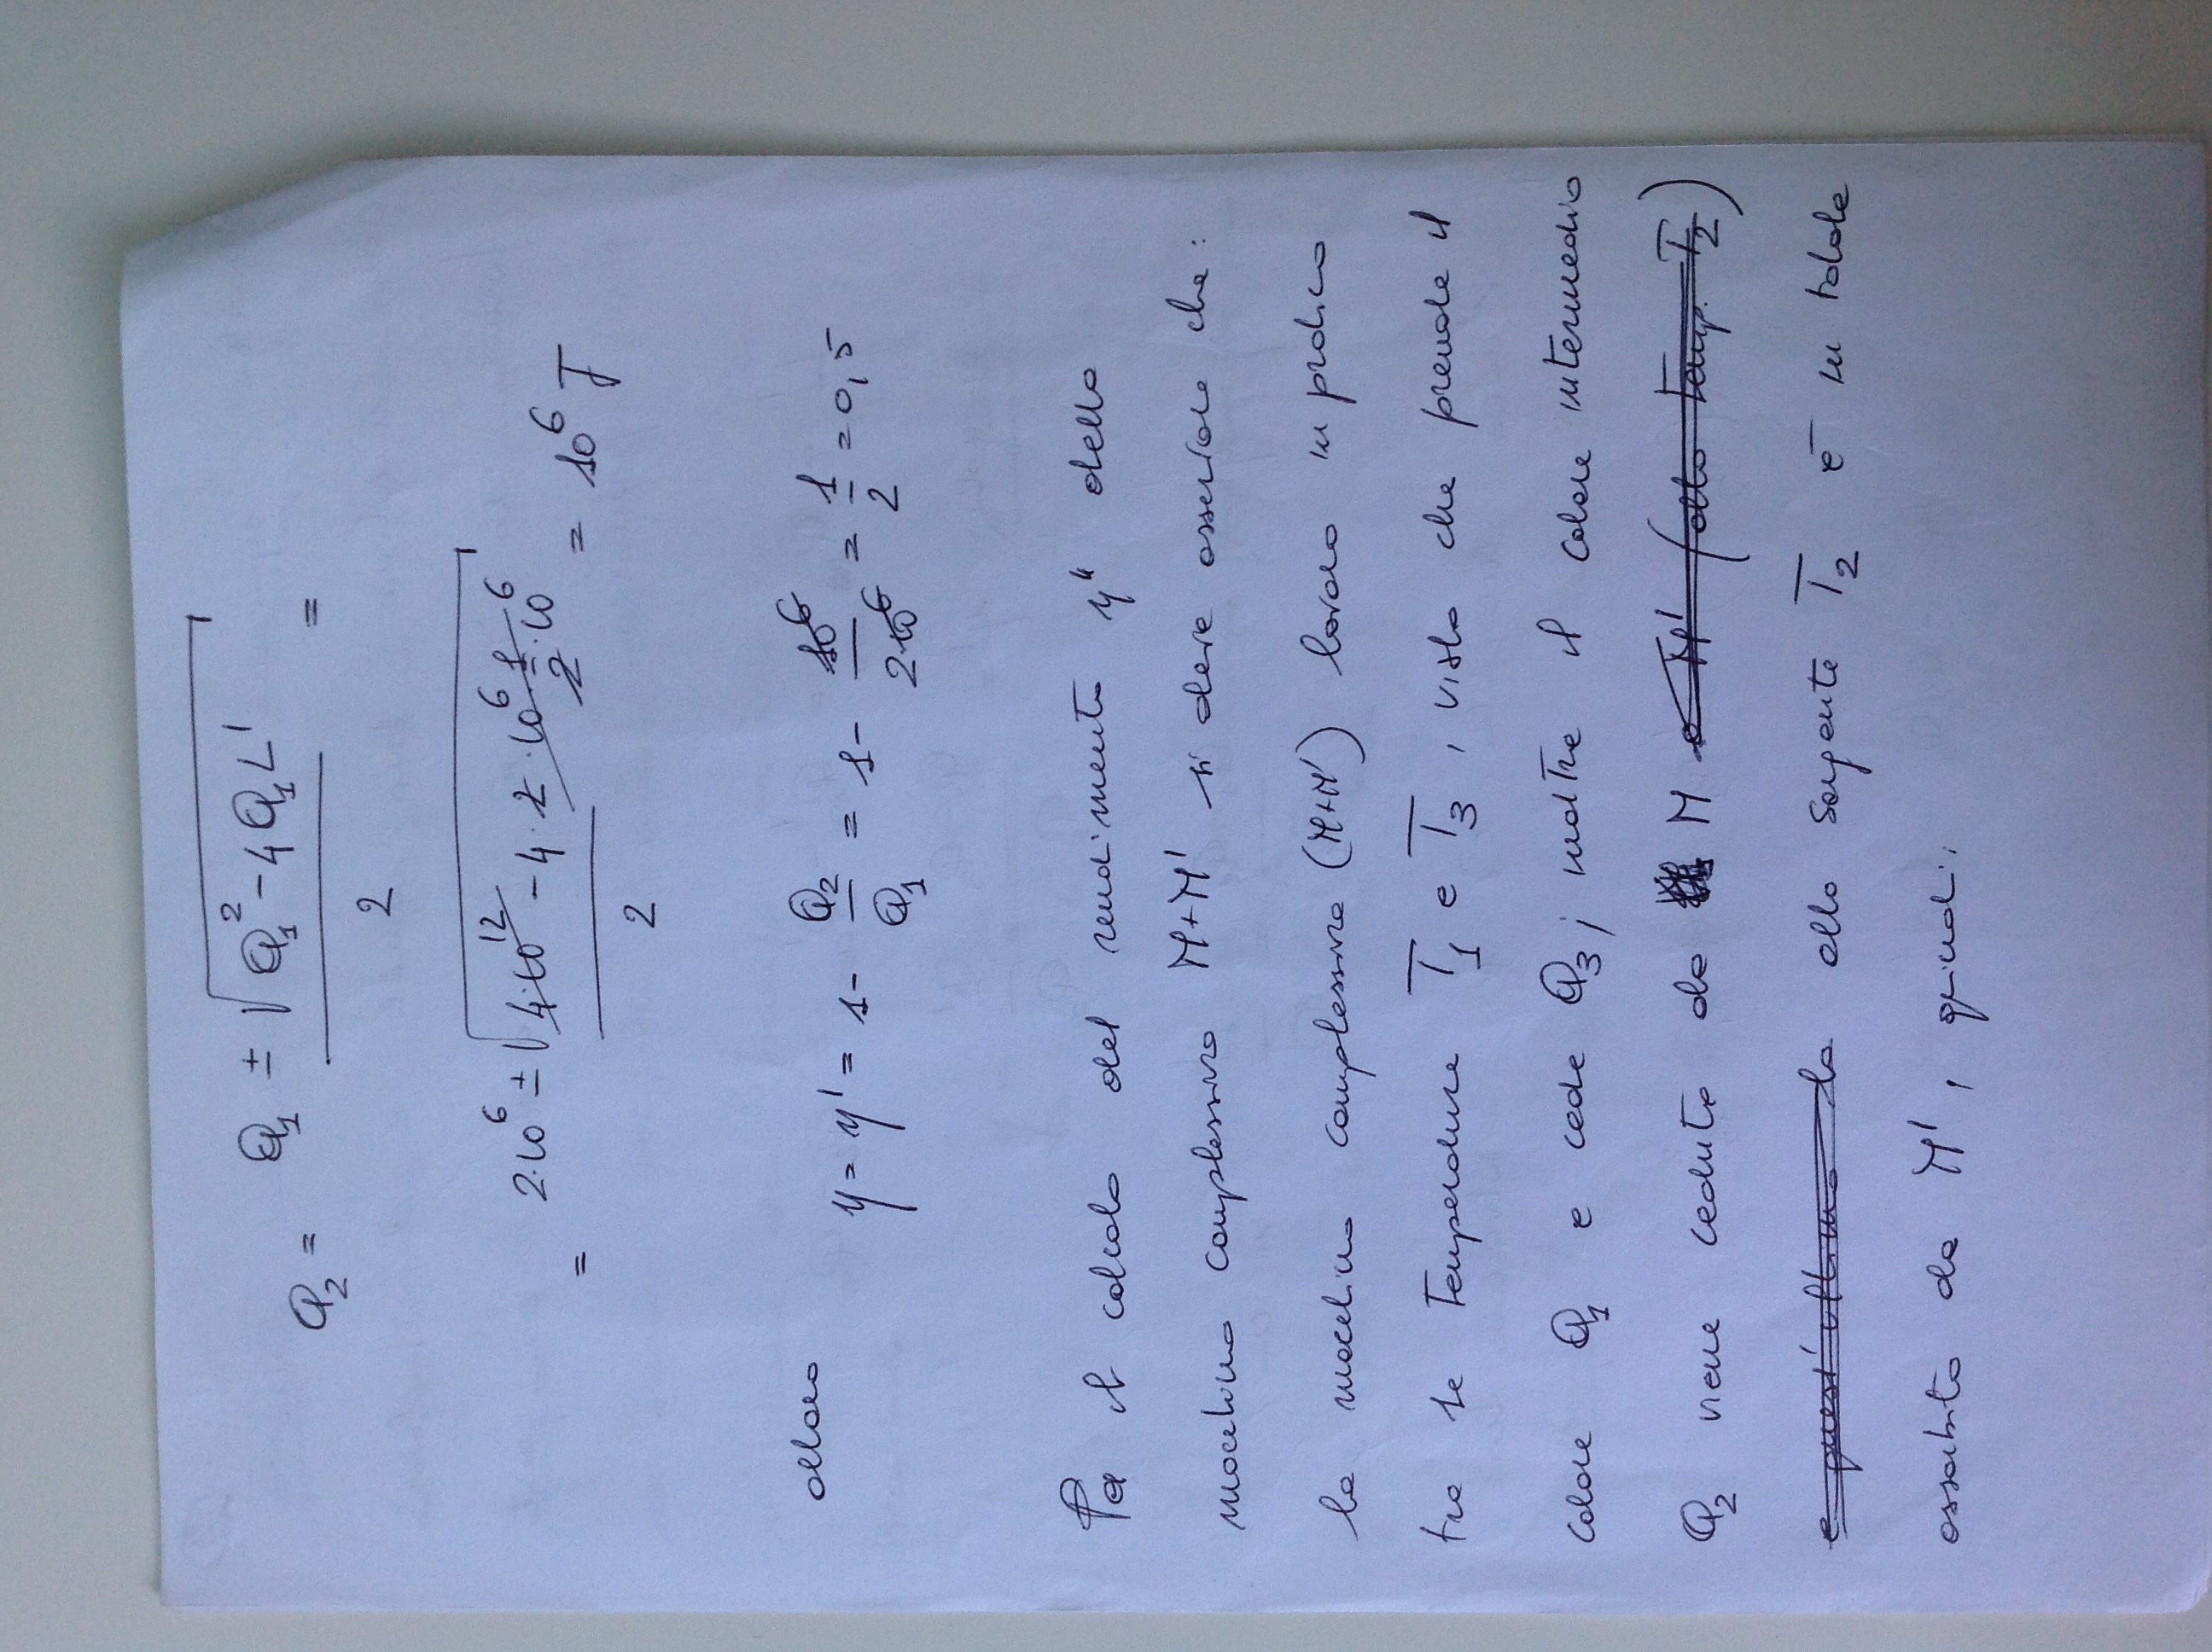 Q₂ = (Q₁ ± √(Q₁² - 4Q₁L')) / 2 =
= (2·10⁶ ± √(4·10¹² - 4·2·10⁶·1/2·10⁶)) / 2 = 10⁶ J
allora η = η' = 1 - Q₂/Q₁ = 1 - 10⁶/2·10⁶ = 1/2 = 0,5
Per il calcolo del rendimento η" della
macchina complessiva M+M' si deve osservare che:
la macchina complessiva (M+M') lavora in pratica
tra le temperature T₁ e T₃, visto che prende il
calore Q₁ e cede Q₃; inoltre il calore intermedio
Q₂ viene ceduto da M a M' (alla temp. T₂)
e quest'ultima la alla sorgente T₂ e in totale
assorbito da M', quindi: